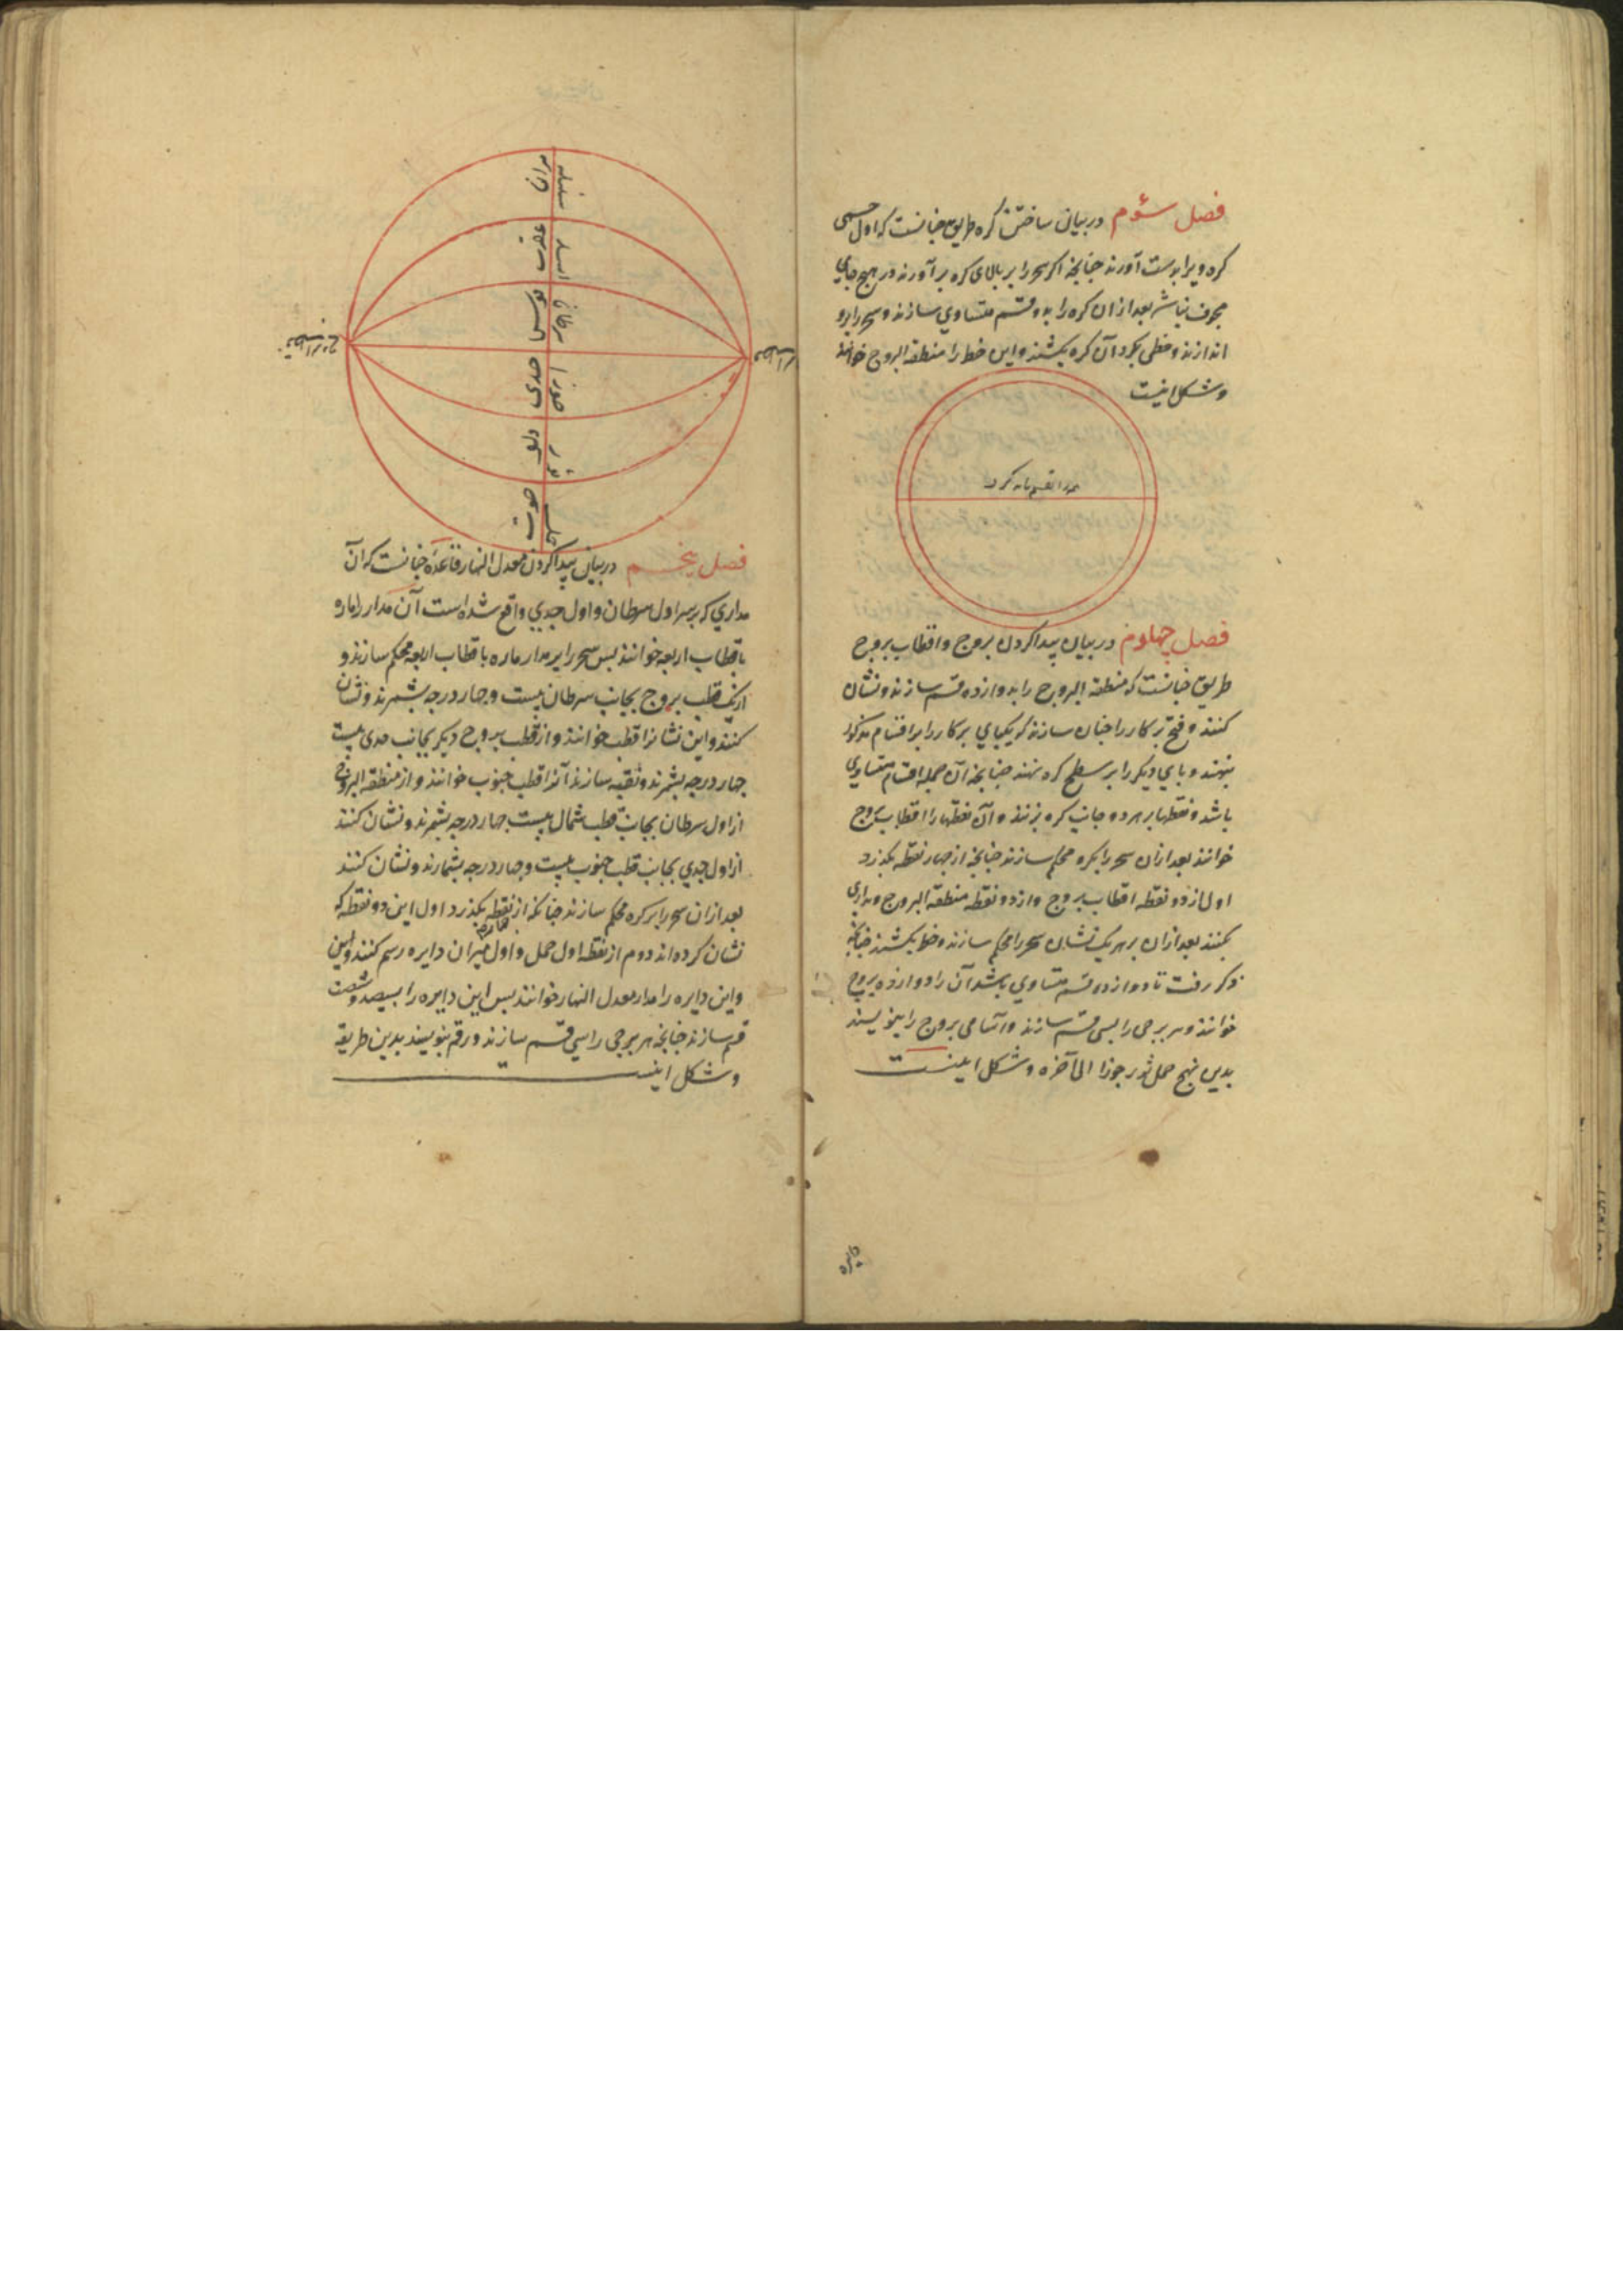 فصل سؤم در بیان ساختن کره طریق چنانست که اول جسمی
کره ویرا بدست آورند چنانچه اکر سحر را بر بالای کره بر آورند در هیچ جای
مجوف نباشد بعد ازان کره را بدو قسم متساوی سازند و سحر را برو
اندازند و خطی بکرد آن کره بکشند و این خط را منطقه البروج خوانند
و شکل اینست
فصل چهارم در بیان پیدا کردن بروج و اقطاب بروج
طریق چنانست که منطقه البروج را بدوازده قسم سازند و نشان
کنند و فتح پرکار را چنان سازند که یکپای پرکار را بر اقسام مذکور
بنهند و پای دیکر را بر سطح کره نهند چنانچه آن جمله اقسام متساوی
باشد و نقطها بر هر دو جانب کره بزنند و آن نقطها را اقطاب بروج
خوانند بعد ازان سحر را بکره محکم سازند چنانچه از چهار نقطه بکذرد
اول از دو نقطه اقطاب بروج و از دو نقطه منطقه البروج و مداری
بکنند بعد ازان بر هر یک نشان سحر را محکم سازند و خط بکشند چنانچه
ذکر رفت تا دوازده قسم متساوی باشد آن را دوازده بروج
خوانند و هر برجی را بسی قسم سازند و اسامی بروج را بنویسند
بدین نهج حمل ثور جوزا الی آخره و شکل اینست
دایره
میزان سنبله
عقرب اسد
قوس سرطان
جدی جوزا
دلو ثور
حوت حمل
فصل پنجم در بیان پیدا کردن معدل النهار قاعده چنانست که آن
مداری که بر سر اول سرطان و اول جدی واقع شده است آن مدار را ماره
باقطاب اربعه خوانند پس سحر را بر مدار ماره باقطاب اربعه محکم سازند و
از یک قطب بروج بجانب سرطان بیست و چهار درجه بشمرند و نشان
کنند و این نشانرا قطب خوانند و از قطب بروج دیکر بجانب جدی بیست
چهار درجه بشمرند و نقبه سازند آنرا قطب جنوب خوانند و از منطقه البروج
از اول سرطان بجانب قطب شمال بیست چهار درجه بشمرند و نشان کنند
از اول جدی بجانب قطب جنوب بیست و چهار درجه بشمارند و نشان کنند
بعد ازان سحر را بر کره محکم سازند چنانکه از چهار نقطه بکذرد اول این دو نقطه که
نشان کرده اند دوم از نقطه اول حمل و اول میزان دایره رسم کنند
و این دایره را مدار معدل النهار خوانند پس این دایره را بسیصد و شصت
قسم سازند چنانچه هر برجی را سی قسم سازند و رقم بنویسند بدین طریقه
و شکل اینست